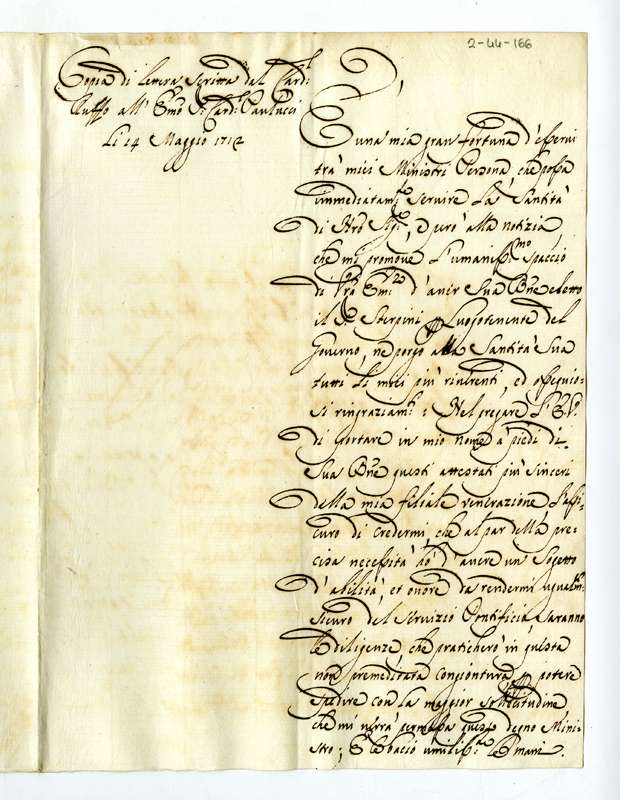 2-44-166
Copia di lettera scritta dal Card:l
Ruffo all' Emo Sr. Card: Paulucci
Li 14 Maggio 1712
È una mia gran fortuna d'esservi
trà miei Ministri Persona, che possa
immediatam.te servire La Santità
di Nrō Sig.re, e però alla notizia
che mi promove L'umaniss.mo spaccio
di Vrā Em.za d'aver Sua Bne eletto
il Sr. Sterpini Luogotenente del
Governo, ne porgo alla Santità Sua
tutti li miei più riverenti, ed ossequio-
si ringraziam.ti: Nel pregare L'E.V.
di portare in mio nome à piedi di
Sua Bne questi attestati più sinceri
della mia filiale venerazione L'assi-
curo di credermi, che al par della pre-
cisa necessità hò d'avere un Sogetto
d'abilità, et onore da rendermi ugualm.te
sicuro del servizio Pontificio, saranno
le diligenze, che praticherò in questa
non premeditata congiontura potere
spedire con la maggior sollecitudine
che mi verrà permessa questo degno Mini-
stro; E le bacio umiliss.te le mani.